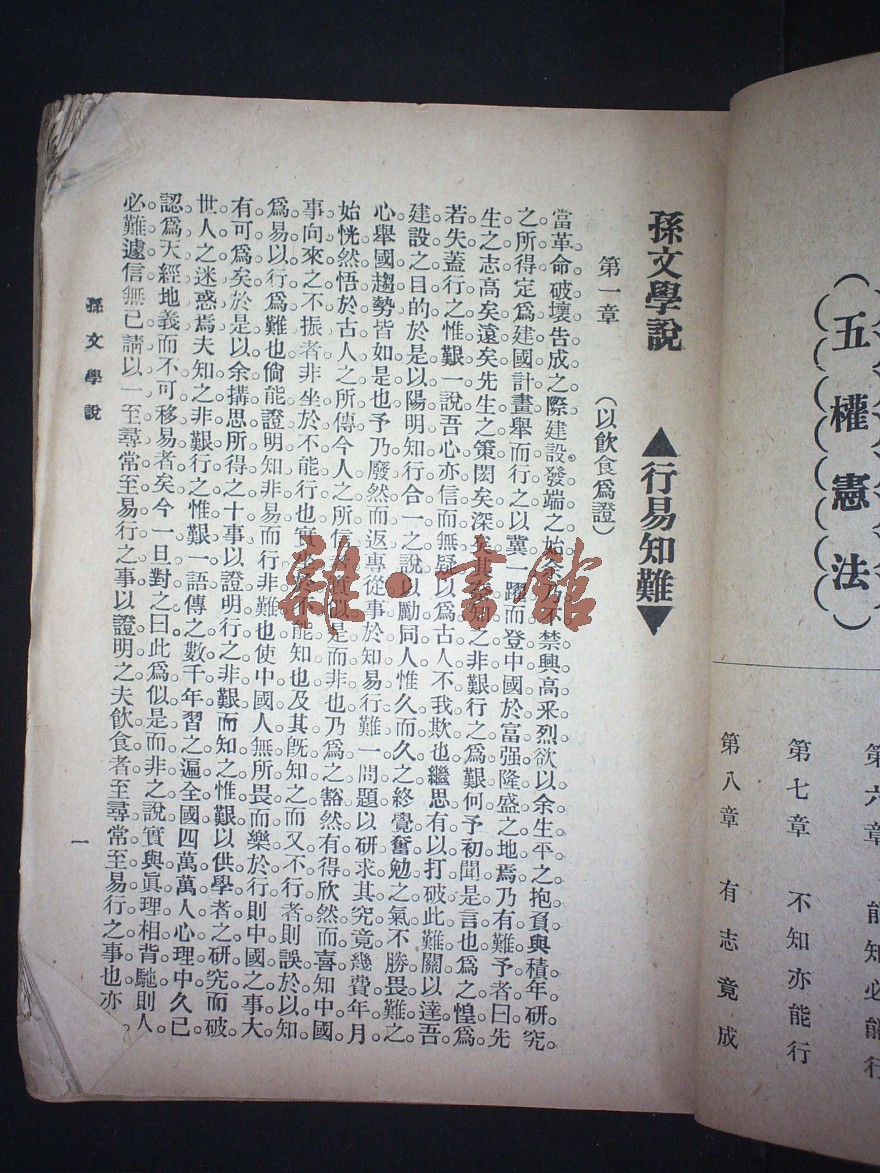 五權憲法
第六章 能知必能行
第七章 不知亦能行
第八章 有志竟成
孫文學說 ▲行易知難▼
第一章 （以飲食爲證）
當革命破壞告成之際建設發端之始余乃不禁興高采烈欲以余生平之抱負與積年研究
之所得定爲建國計畫舉而行之以冀一躍而登中國於富强隆盛之地焉乃有難予者曰先
生之志高矣遠矣先生之策閎矣深矣其奈知之非艱行之爲艱何予初聞是言也爲之惶爲
若失蓋行之惟艱一說吾心亦信而無疑以爲古人不我欺也繼思有以打破此難關以達吾
建設之目的於是以陽明知行合一之說以勵同人惟久而久之終覺奮勉之氣不勝畏難之
心舉國趨勢皆如是也予乃廢然而返專從事於知易行難一問題以研求其究竟幾費年月
始恍然悟於古人之所傳今人之所信者實似是而非也乃爲之豁然有得欣然而喜知中國
事向來之不振者非坐於不能行也實坐於不能知也及其旣知之而又不行者則誤於以知
爲易以行爲難也倘能證明知非易而行非難也使中國人無所畏而樂於行則中國之事大
有可爲矣於是以余搆思所得之十事以證明行之非艱而知之惟艱以供學者之研究而破
世人之迷惑焉夫知之非艱行之惟艱一語傳之數千年習之遍全國四萬萬人心理中久已
認爲天經地義而不可移易者矣今一日對之曰此爲似是而非之說實與眞理相背馳則人
必難遽信無已請以一至尋常至易行之事以證明之夫飲食者至尋常至易行之事也亦
孫文學說
一
雜·書館